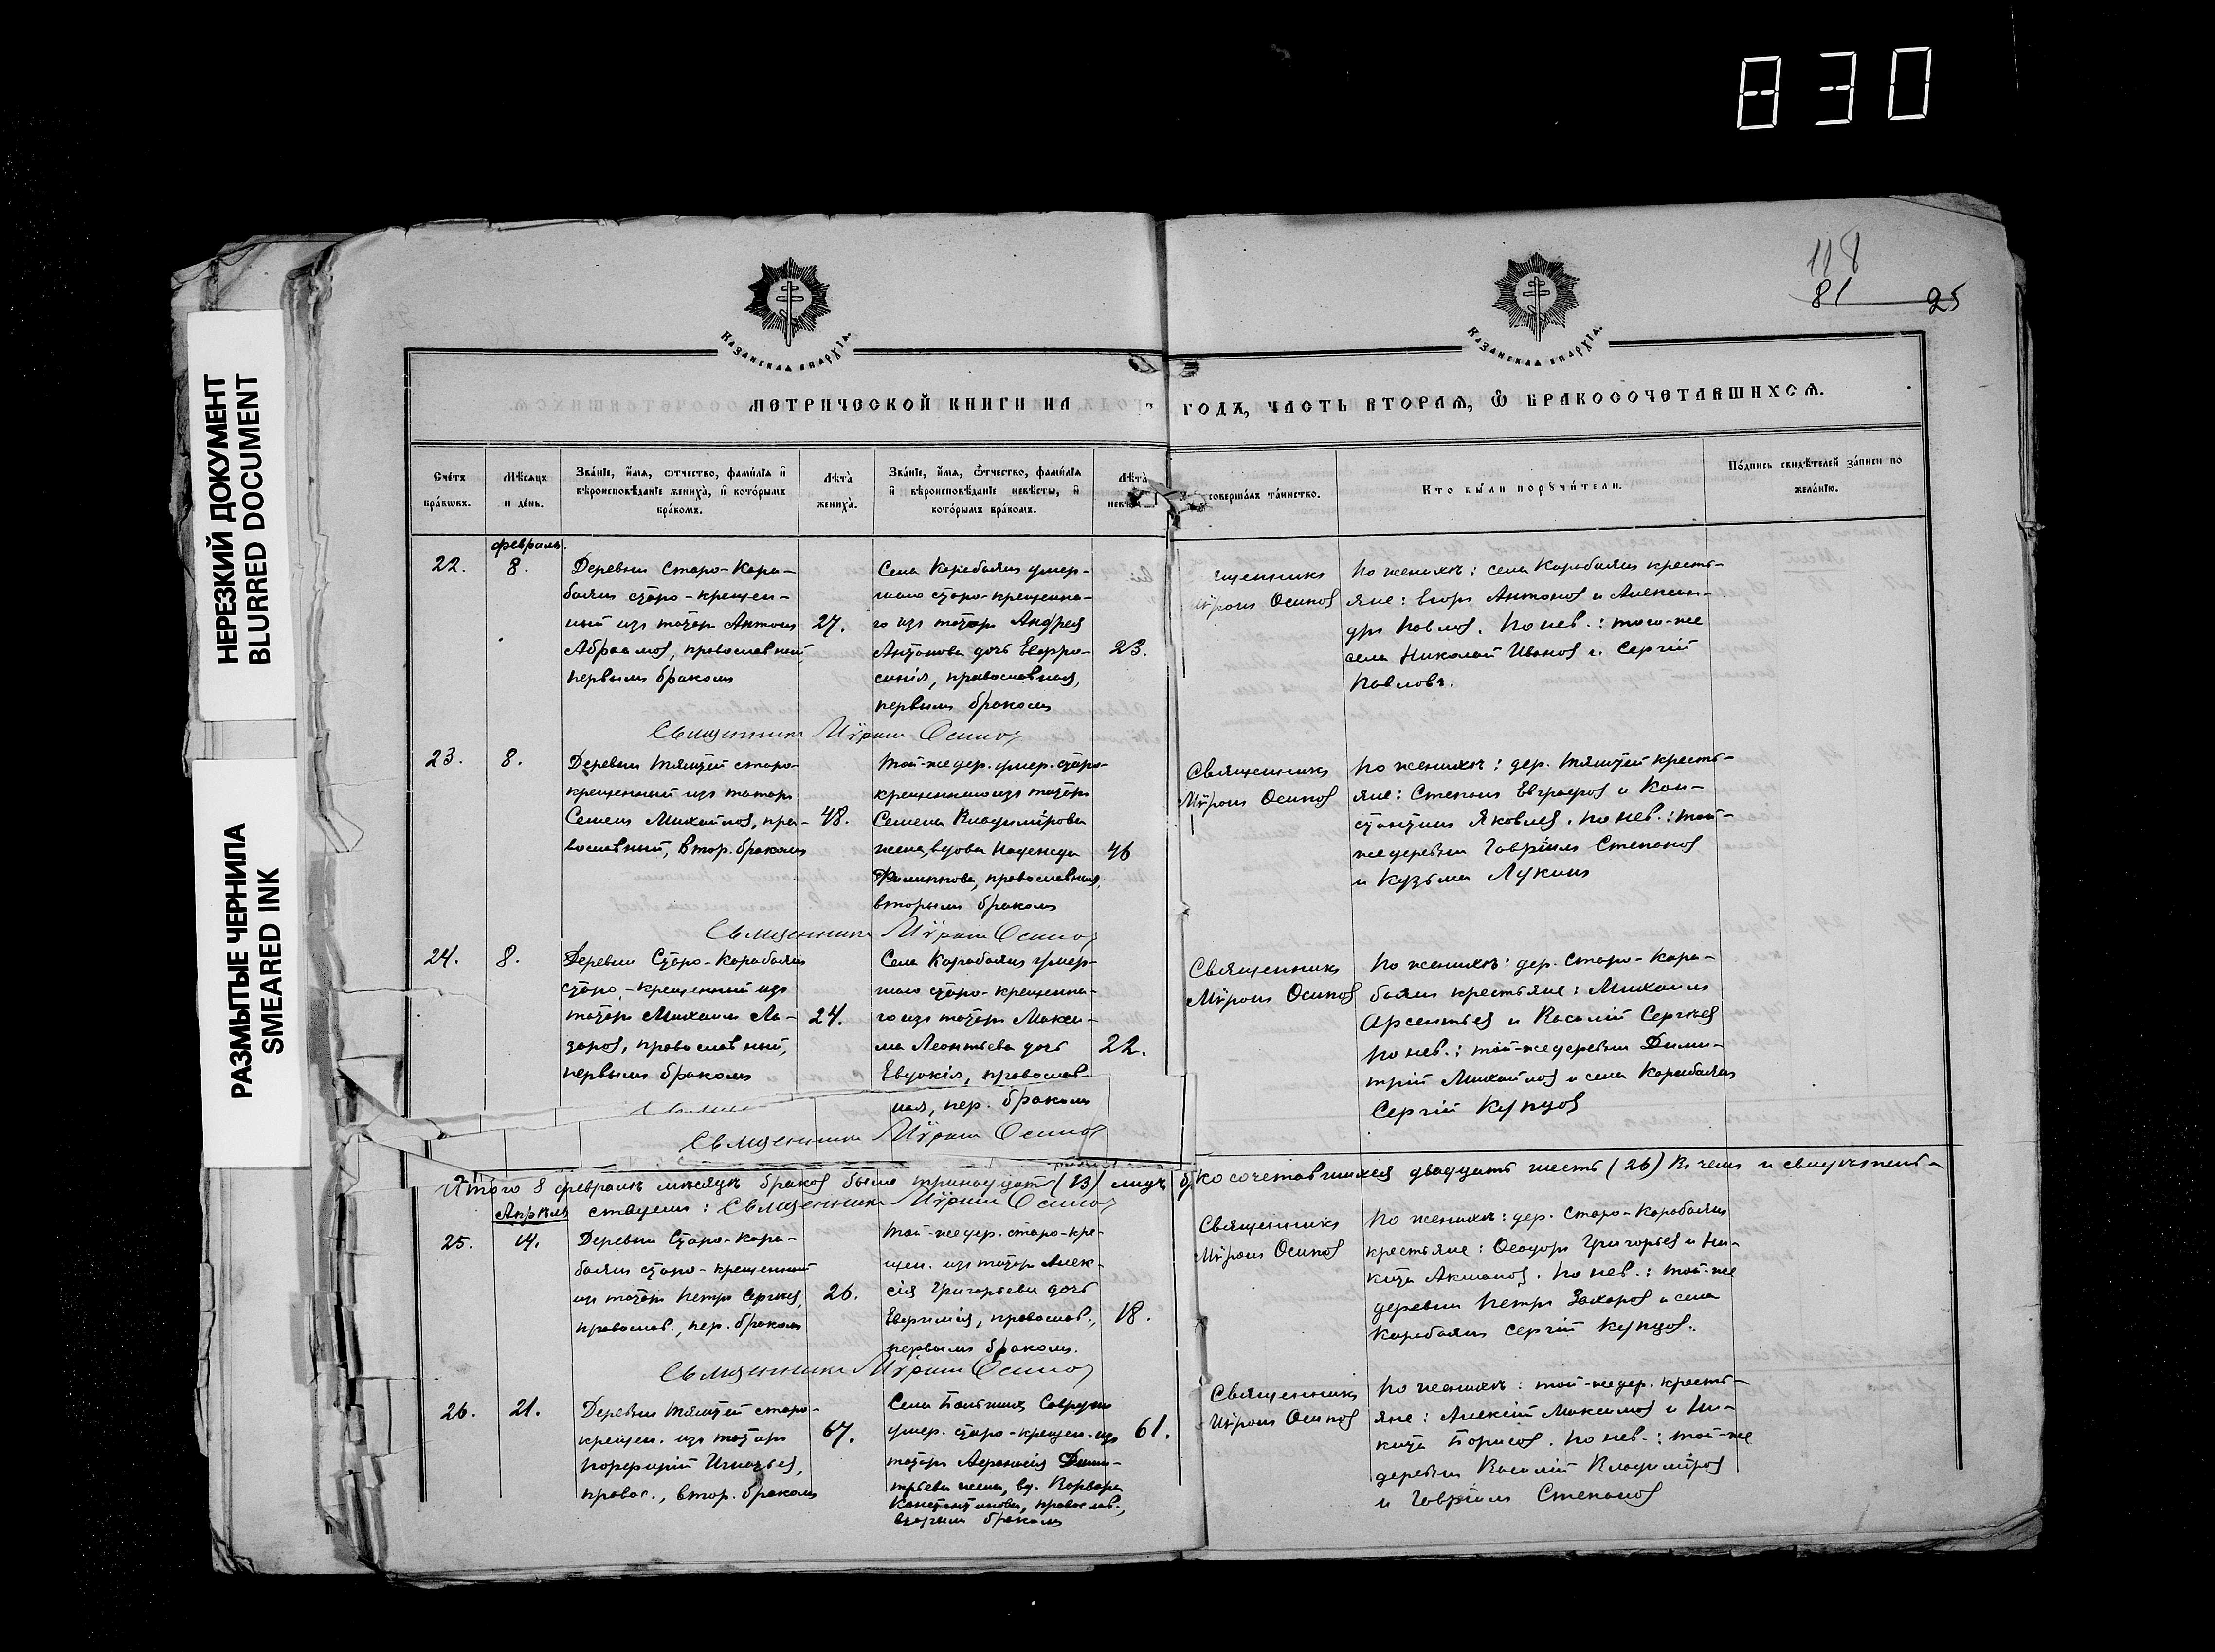 830
НЕРЕЗКИЙ ДОКУМЕНТ
BLURRED DOCUMENT
РАЗМЫТЫЕ ЧЕРНИЛА
SMEARED INK
118
81
25
КАЗАНСКАѦ ЕПАРХІѦ.
КАЗАНСКАѦ ЕПАРХІѦ.
МЕТРИЧЕСКОЙ КНИГИ НА
ГОДЪ, ЧАСТЬ ВТОРАѦ, Ѿ БРАКОСОЧЕТАВШИХСѦ.
Счетъ бракѡвъ.
Мѣсяцъ и день.
Званіе, имя, отчество, фамилія и вѣроисповѣданіе жениха, и которымъ бракомъ.
Лѣта жениха.
Званіе, имя, отчество, фамилія и вѣроисповѣданіе невѣсты, и которымъ бракомъ.
Лѣта
совершалъ таинство.
Кто были поручители.
Подпись свидѣтелей записи по желанію.
февраль.
22.
8.
Деревни Старо-Кара-
баянъ старо-крещен-
ный изъ татаръ Антонъ
Абрамов, православный
первымъ бракомъ
27.
Села Карабаянъ умер-
шаго старо-крещенна-
го изъ татаръ Андрея
Антонова дочь Евфро-
синія, православная,
первымъ бракомъ
23.
Мѵронъ Осипов
По женихѣ: села Карабаянъ кресть-
яне: Егоръ Антонов и Алексан-
дръ Павлов. По нев.: того-же
села Николай Иванов и Сергій
Павловъ.
Священникъ Мѵронъ Осипов
23.
8.
Деревни Тямтей старо-
крещенный изъ татаръ
Семенъ Михайлов, пра-
вославный, втор. бракомъ
48.
Той-же дер. умер. старо-
крещеннаго изъ татаръ
Семена Владимірова
жена, вдова Надежда
Филиппова, православная,
вторымъ бракомъ
46
Священникъ
Мѵронъ Осипов
По женихѣ: дер. Тямтей кресть-
яне: Степанъ Евграфов и Кон-
стантинъ Яковлев. По нев.: той-
же деревни Гавріилъ Степанов
и Кузьма Лукинъ
Священникъ Мѵронъ Осипов
24.
8.
Деревни Старо-Карабаянъ
старо-крещенный изъ
татаръ Михаилъ Ла-
заров, православный,
первымъ бракомъ
24.
Села Карабаянъ умер-
шаго старо-крещенна-
го изъ татаръ Макси-
ма Леонтьева дочь
Евдокія, православ
ная, пер. бракомъ
22.
Священникъ
Мѵронъ Осипов
По женихѣ: дер. Старо-Кара-
баянъ крестьяне: Михаилъ
Арсентьев и Василій Сергѣев
По нев.: той-же деревни Дими-
трій Михайлов и села Карабаянъ
Сергій Купцов
Священникъ Мѵронъ Осипов
Итого в февралѣ мѣсяцѣ браков было тринадцать (13) лицъ бракосочетавшихся двадцать шесть (26) Въ чемъ и свидѣтель-
ствуемъ: Священникъ Мѵронъ Осипов
Апрѣль
25.
14.
Деревни Старо-Кара-
баянъ старо-крещенный
изъ татаръ Петръ Сергѣев,
православ., пер. бракомъ
26.
Той-же дер. старо-кре-
щен. изъ татаръ Алек-
сѣя Григорьева дочь
Евфимія, православ.,
первымъ бракомъ.
18.
Священникъ
Мѵронъ Осипов
По женихѣ: дер. Старо-Карабаянъ
крестьяне: Ѳеодоръ Григорьев и Ни-
кита Акимов. По нев.: той-же
деревни Петръ Захаров и села
Карабаянъ Сергій Купцов.
Священникъ Мѵронъ Осипов
26.
21.
Деревни Тямтей старо-
крещен. изъ татаръ
Порфирій Игнатьев,
правос., втор. бракомъ
67.
Села Саврушъ
умер. старо-крещен. изъ
татаръ Аѳанасія Дими-
тріева жена, вд. Варвара
Константинова, православ.,
вторымъ бракомъ
61.
Священникъ
Мѵронъ Осипов
По женихѣ: той-же дер. кресть-
яне: Алексѣй Максимов и Ни-
кита Борисов. По нев.: той-же
деревни Василій Владиміров
и Гавріилъ Степанов